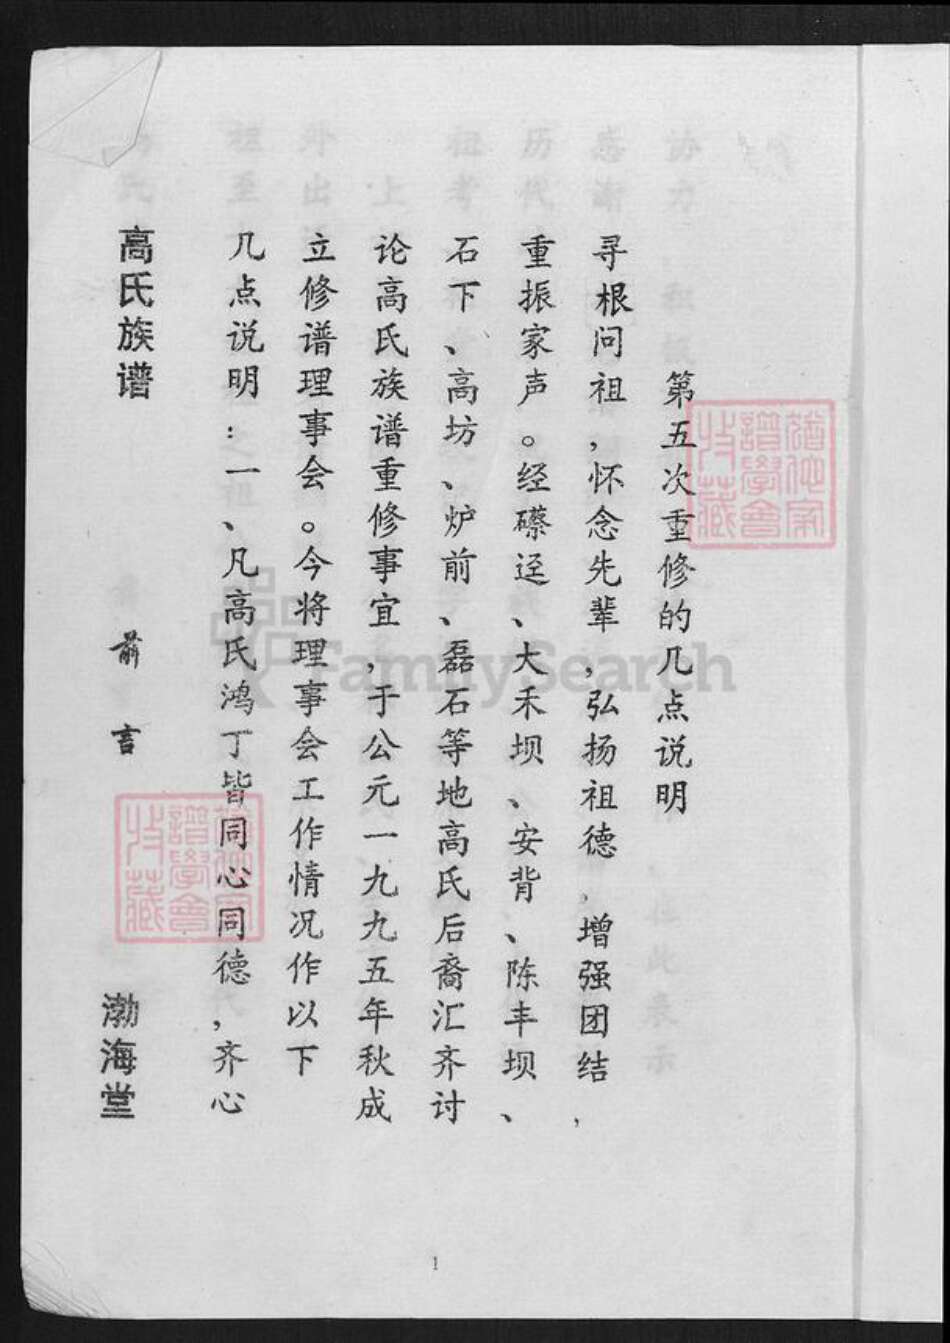 第五次重修的几点说明
寻根问祖，怀念先辈，弘扬祖德，增强团结，
重振家声。经礤迳、大禾坝、安背、陈丰坝、
石下、高坊、炉前、磊石等地高氏后裔汇齐讨
论高氏族谱重修事宜，于公元一九九五年秋成
立修谱理事会。今将理事会工作情况作以下
几点说明：一、凡高氏鸿丁皆同心同德，齐心
高氏族谱 前言 渤海堂
1
FamilySearch
譜學會
收藏
譜學會
收藏